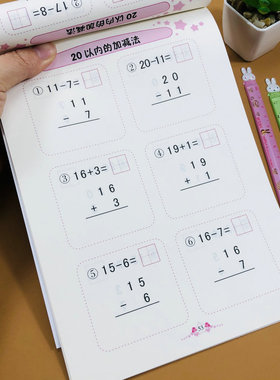 11-8=
20以内的加减法
20以内的加减法
① 11-7=
11
- 7
② 20-11=
20
- 11
③ 16+3=
16
+ 3
④ 19+1=
19
+ 1
⑤ 15-6=
15
- 6
⑥ 16-7=
16
- 7
53